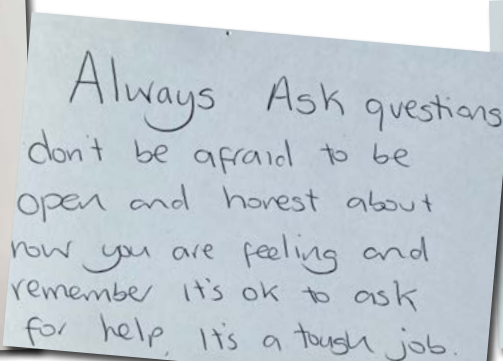 Always Ask questions
don't be afraid to be
open and honest about
how you are feeling and
remember it's ok to ask
for help. It's a tough job.